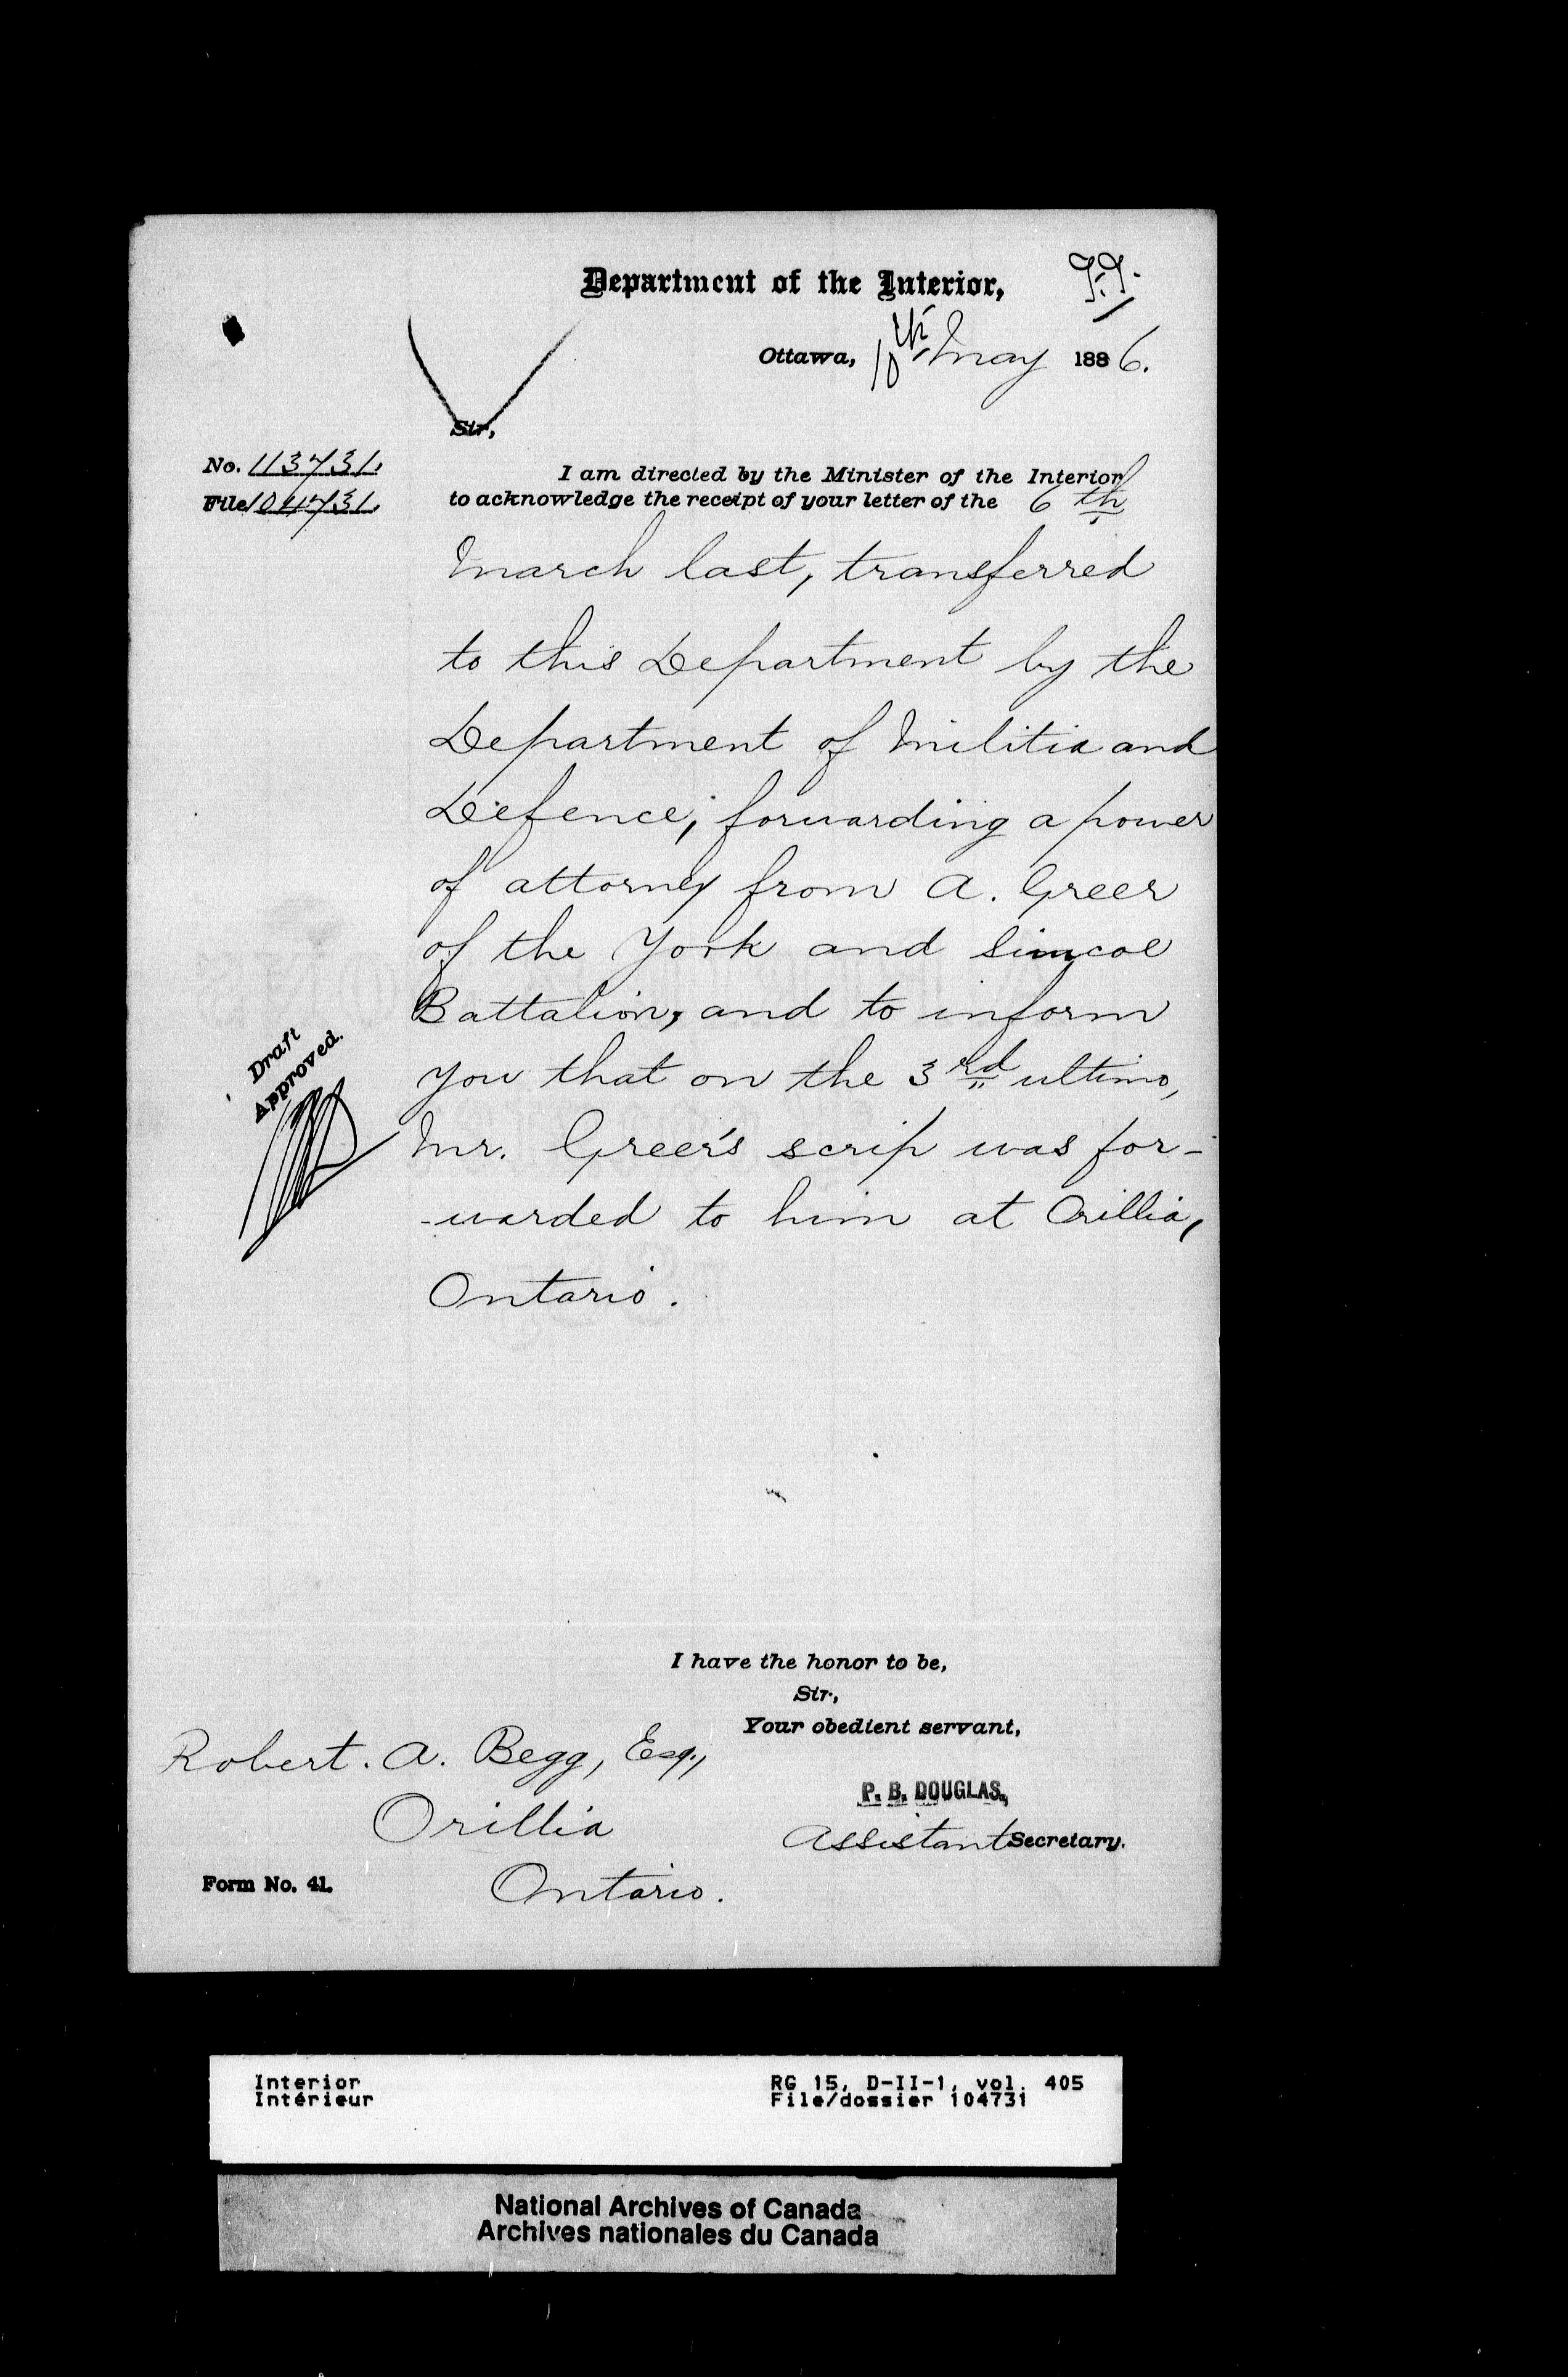 Department of the Interior,
Ottawa, 10th May 1886.
Sir,
No. 113731.
File 104731.
I am directed by the Minister of the Interior
to acknowledge the receipt of your letter of the 6th
March last, transferred
to this Department by the
Department of Militia and
Defence, forwarding a power
of attorney from A. Greer
of the York and Simcoe
Battalion, and to inform
you that on the 3rd ultimo,
Mr. Greer's scrip was for-
-warded to him at Orillia,
Ontario.
Draft
Approved.
I have the honor to be,
Sir,
Your obedient servant,
P. B. DOUGLAS,
Assistant Secretary.
Robert. A. Begg, Esq.,
Orillia
Ontario.
Form No. 41.
Interior
Intérieur
RG 15, D-II-1, vol. 405
File/dossier 104731
National Archives of Canada
Archives nationales du Canada